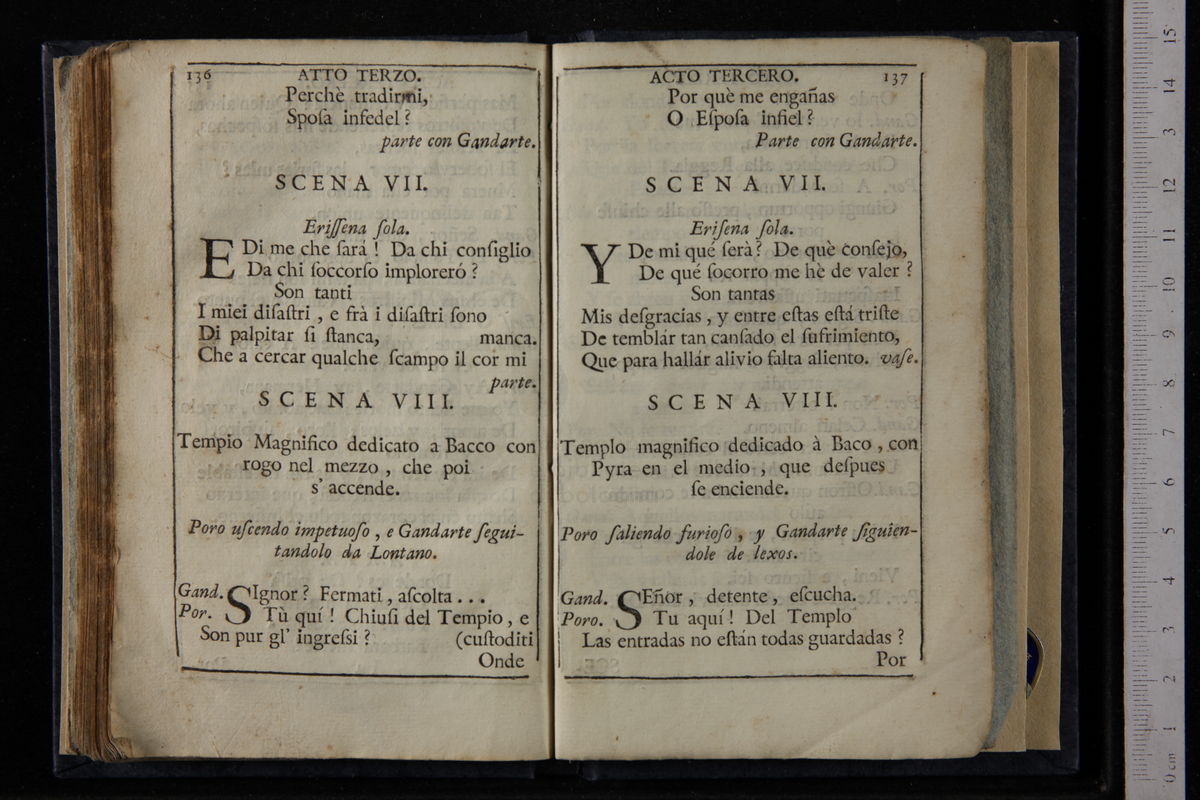 136 ATTO TERZO.
Perchè tradirmi,
Spoſa infedel?
parte con Gandarte.
SCENA VII.
Eriſſena ſola.
E Di me che ſará! Da chi conſiglio
Da chi ſoccorſo imploreró?
Son tanti
I miei diſaſtri, e frà i diſaſtri ſono
Di palpitar ſi ſtanca, manca.
Che a cercar qualche ſcampo il cor mi
parte.
SCENA VIII.
Tempio Magnifico dedicato a Bacco con
rogo nel mezzo, che poi
s' accende.
Poro uſcendo impetuoſo, e Gandarte ſegui-
tandolo da Lontano.
Gand. SIgnor? Fermati, aſcolta...
Por. Tù quí! Chiuſi del Tempio, e
Son pur gl' ingreſsi? (cuſtoditi
Onde
ACTO TERCERO. 137
Por què me engañas
O Eſpoſa infiel?
Parte con Gandarte.
SCENA VII.
Eriſena ſola.
Y De mi qué ſerà? De què conſejo,
De qué ſocorro me hè de valer?
Son tantas
Mis deſgracias, y entre eſtas eſtá triſte
De temblár tan canſado el ſufrimiento,
Que para hallár alivio falta aliento. vaſe.
SCENA VIII.
Templo magnifico dedicado à Baco, con
Pyra en el medio, que deſpues
ſe enciende.
Poro ſaliendo furioſo, y Gandarte ſiguien-
dole de lexos.
Gand. SEñor, detente, eſcucha.
Poro. Tu aquí! Del Templo
Las entradas no eſtán todas guardadas?
Por